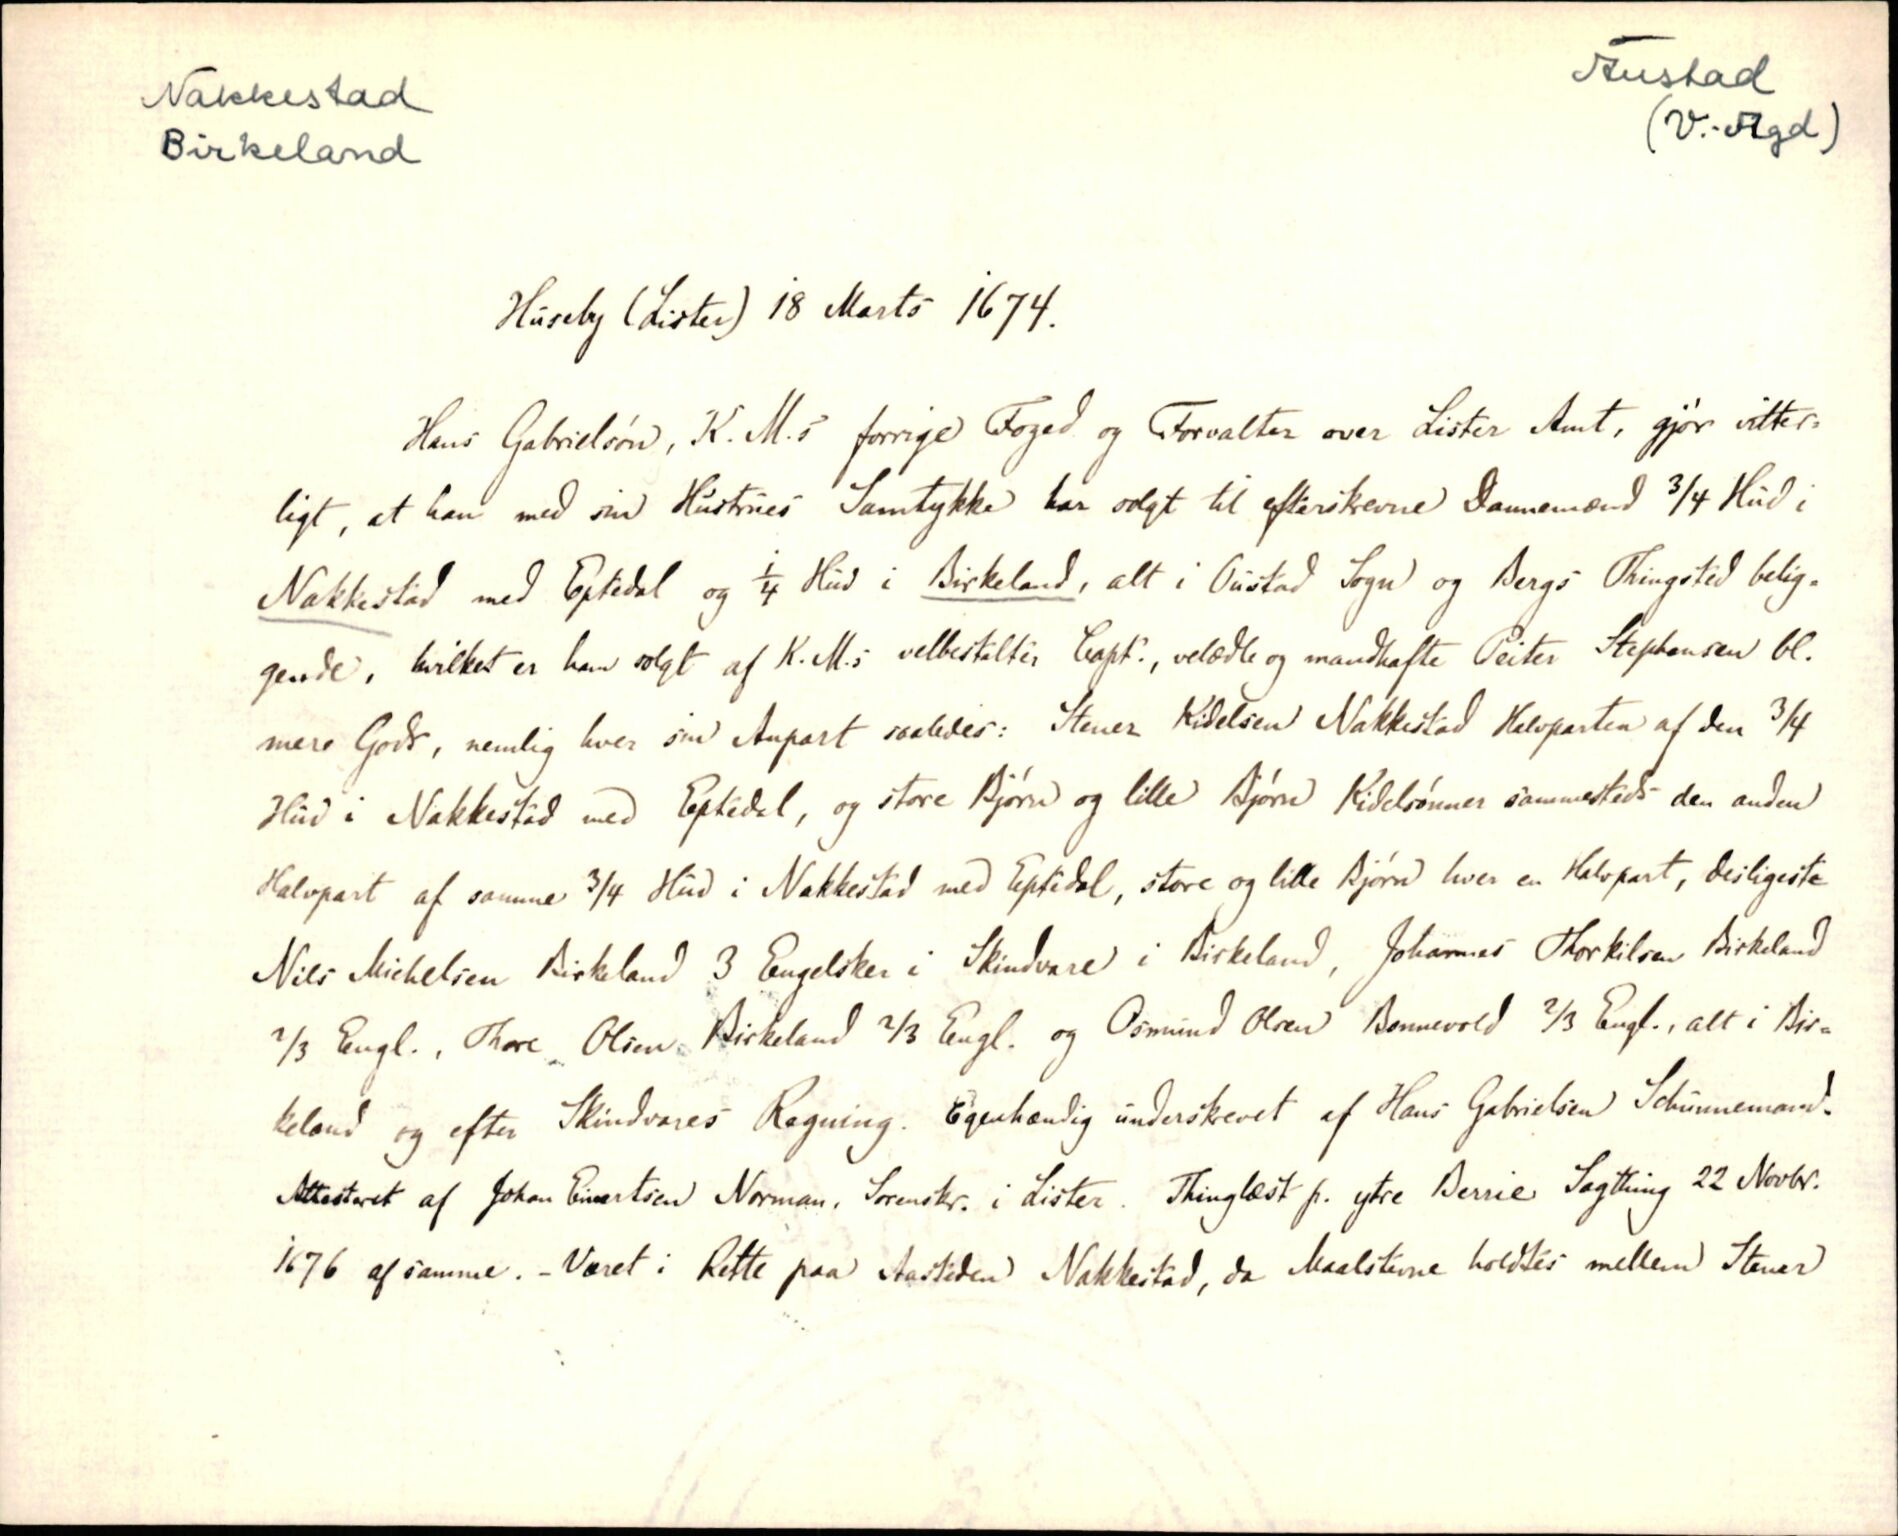 Nakkestad
Birkeland
Austad
(V.-Agd)
Huseby (Lister) 18 Marts 1674.
Hans Gabrielsön, K. M.s forrige Foged og Forvalter over Lister Amt, gjör vitter-
ligt, at han med sin Hustrues Samtykke har solgt til efterskrevne Dannemænd 3/4 Hud i
Nakkestad med Eptedal og 1/4 Hud i Birkeland, alt i Oustad Sogn og Bergs Thingsted belig-
gende, hvilket er ham solgt af K. M.s velbestalter Capt., velædle og mandhafte Peiter Stephensen bl.
mere Gods, nemlig hver sin Anpart saaledes: Stener Kidelsen Nakkestad Halvparten af den 3/4
Hud i Nakkestad med Eptedal, og store Björn og lille Björn Kidelsönner sammesteds den anden
Halvpart af samme 3/4 Hud i Nakkestad med Eptedal, store og lille Björn hver en Halvpart, desligeste
Nils Michelsen Birkeland 3 Engelsker i Skindvare i Birkeland, Johannes Thorkilsen Birkeland
2/3 Engl., Thore Olsen Birkeland 2/3 Engl. og Osmund Olsen Bonnevold 2/3 Engl., alt i Bir-
keland og efter Skindvares Regning. Egenhændig underskrevet af Hans Gabrielsen Schunnemand.
Attesteret af Johan Evertsen Norman, Sorenskr. i Lister. Thinglæst p. ytre Berrie Sagthing 22 Novbr.
1676 af samme. - Været i Rette paa Aasteden Nakkestad, da Maalstevne holdtes mellem Stener